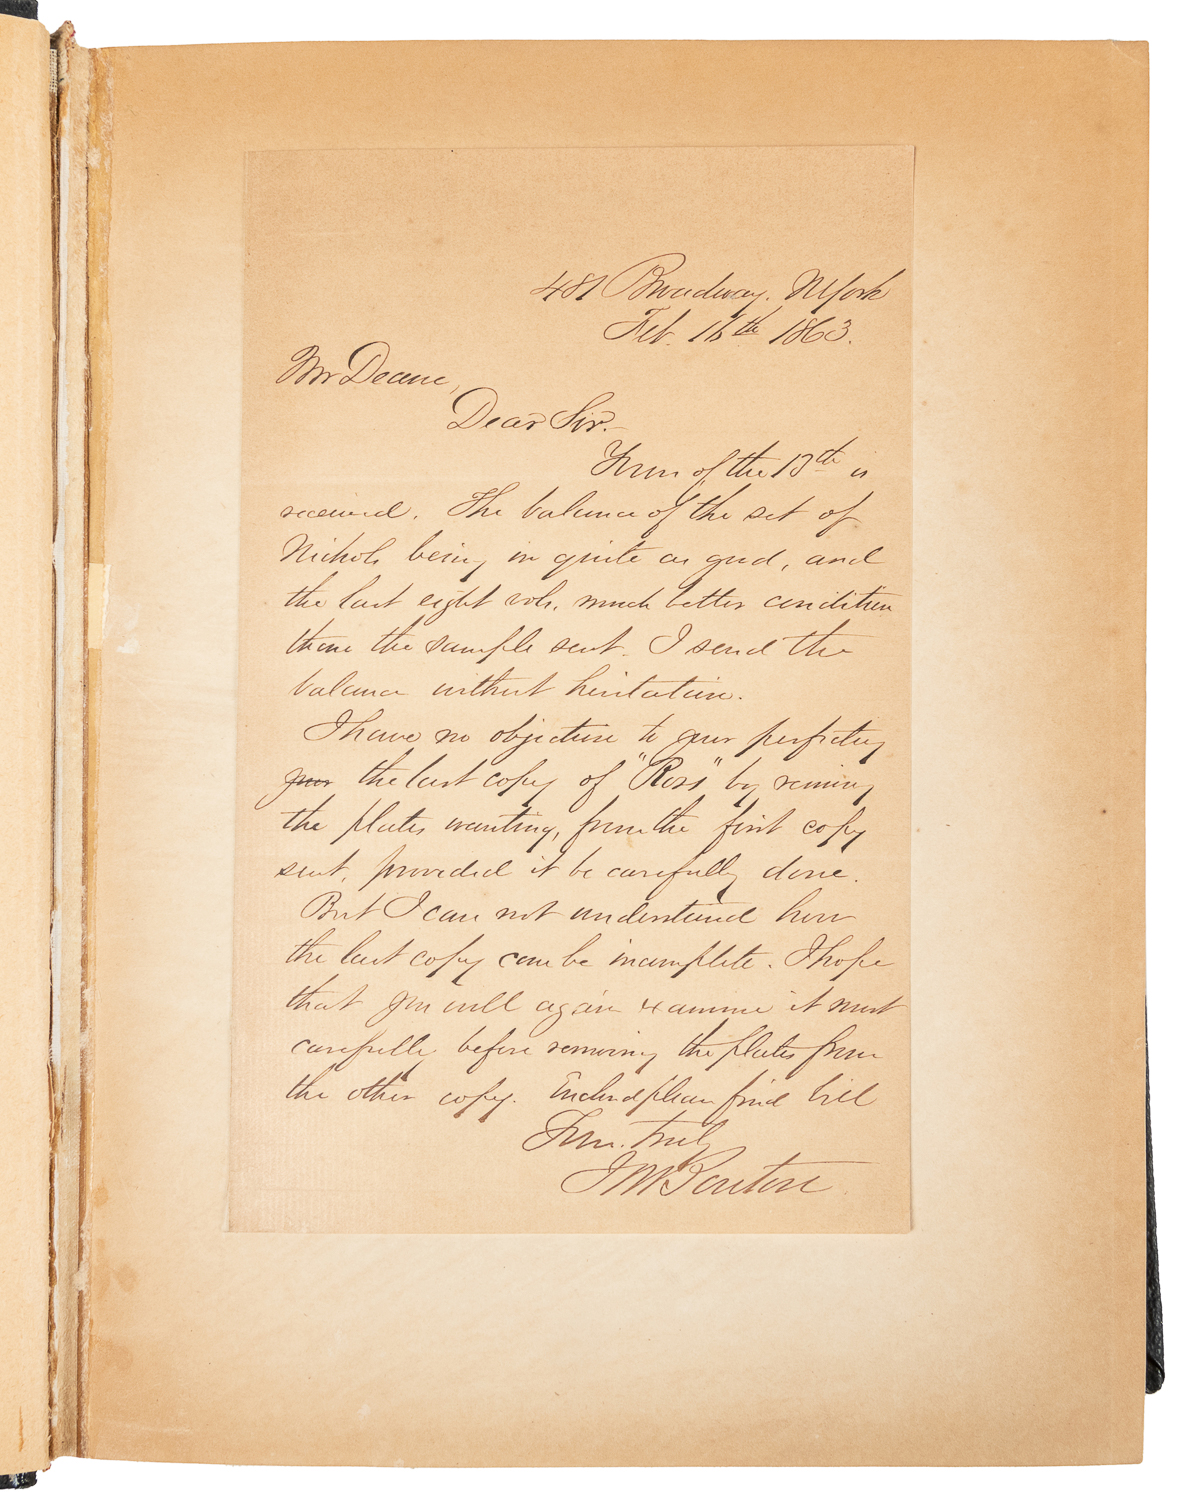 481 Broadway. N York
Feb. 16th 1863.
Mr Deane,
Dear Sir.—
Yours of the 13th is
received. The balance of the set of
Nichols being in quite as good, and
the last eight vols. much better condition
than the sample sent. I send the
balance without hesitation.
I have no objections to your perfecting
your the last copy of "Ross" by removing
the plates wanting, from the first copy
sent, provided it be carefully done.
But I can not understand how
the last copy can be incomplete. I hope
that you will again examine it most
carefully before removing the plates from
the other copy. Enclosed please find bill
Yours truly
J W Bouton